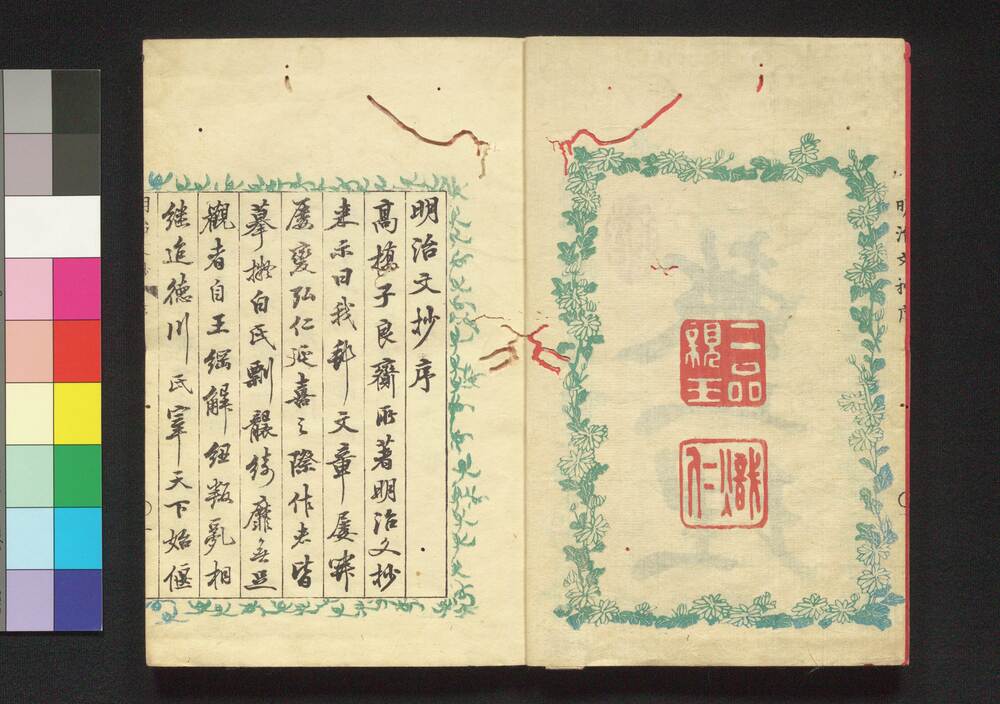 明治文抄序
二品
親王
熾
仁
明治文抄序
高橋子良齋所著明治文抄
来示曰我邦文章屡弊
屡變弘仁延喜之際作者皆
摹擬白氏剽襲綺靡無足
觀者自王綱解紐叛亂相
継迨德川氏宰天下始偃